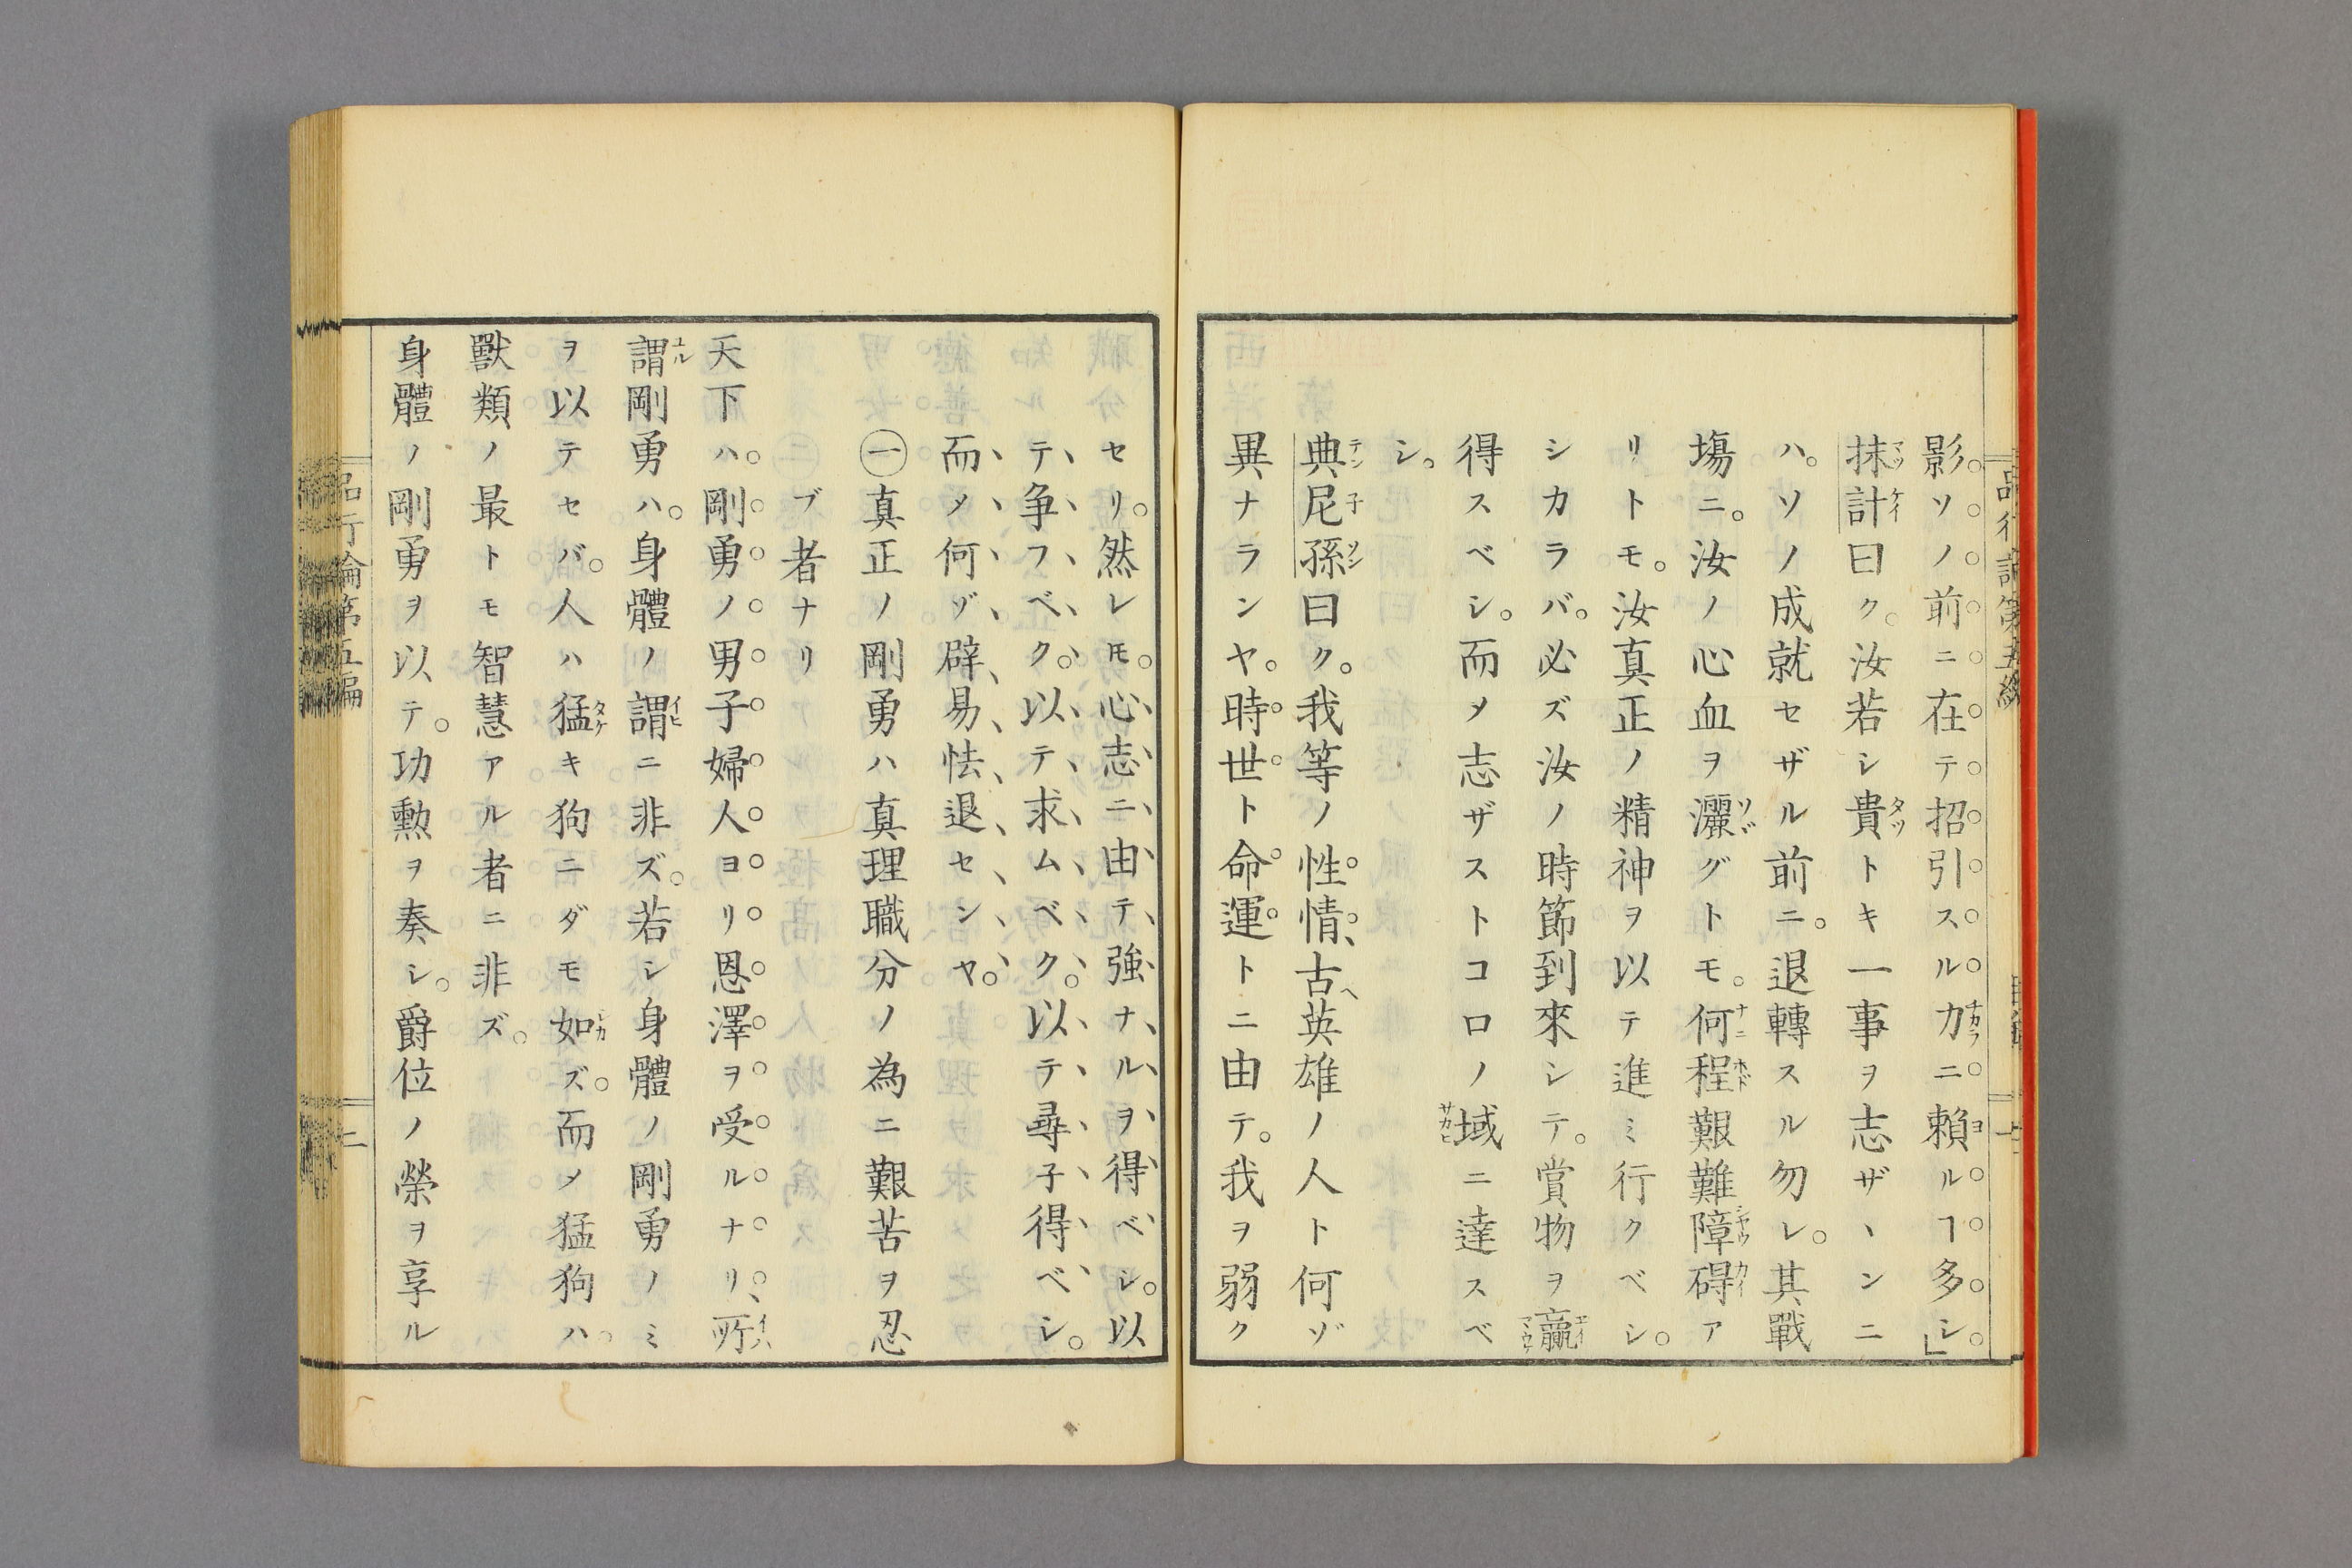 影。ソノ前ニ在テ招引スル力ニ頼ルヿ多シ。」
抹計曰ク。汝若シ貴トキ一事ヲ志ザヽンニ
ハ。ソノ成就セザル前ニ。退轉スル勿レ。其戰
塲ニ。汝ノ心血ヲ灑グトモ。何程艱難障碍ア
リトモ。汝真正ノ精神ヲ以テ進ミ行クベシ。
シカラバ。必ズ汝ノ時節到來シテ。賞物ヲ贏
得スベシ。而メ志ザストコロノ域ニ達スベ
シ。
典尼孫曰ク。我等ノ性情、古ヘ英雄ノ人ト何ゾ
異ナランヤ。時世ト命運トニ由テ。我ヲ弱ク
セリ。然レ𪜈。心志ニ由テ強ナルヲ得ベシ。以
テ争フベク。以テ求ムベク。以テ尋子得ベシ。
而メ何ゾ辟易怯退センヤ。
㊀真正ノ剛勇ハ真理職分ノ為ニ艱苦ヲ忍
ブ者ナリ
天下ハ剛勇ノ男子婦人ヨリ恩澤ヲ受ルナリ、所
謂剛勇ハ。身體ノ謂ニ非ズ。若シ身體ノ剛勇ノミ
ヲ以テセバ。人ハ猛キ狗ニダモ如ズ。而メ猛狗ハ。
獸類ノ最トモ智慧アル者ニ非ズ。
身體ノ剛勇ヲ以テ。功勲ヲ奏シ。爵位ノ榮ヲ享ル
品行論第五編
二